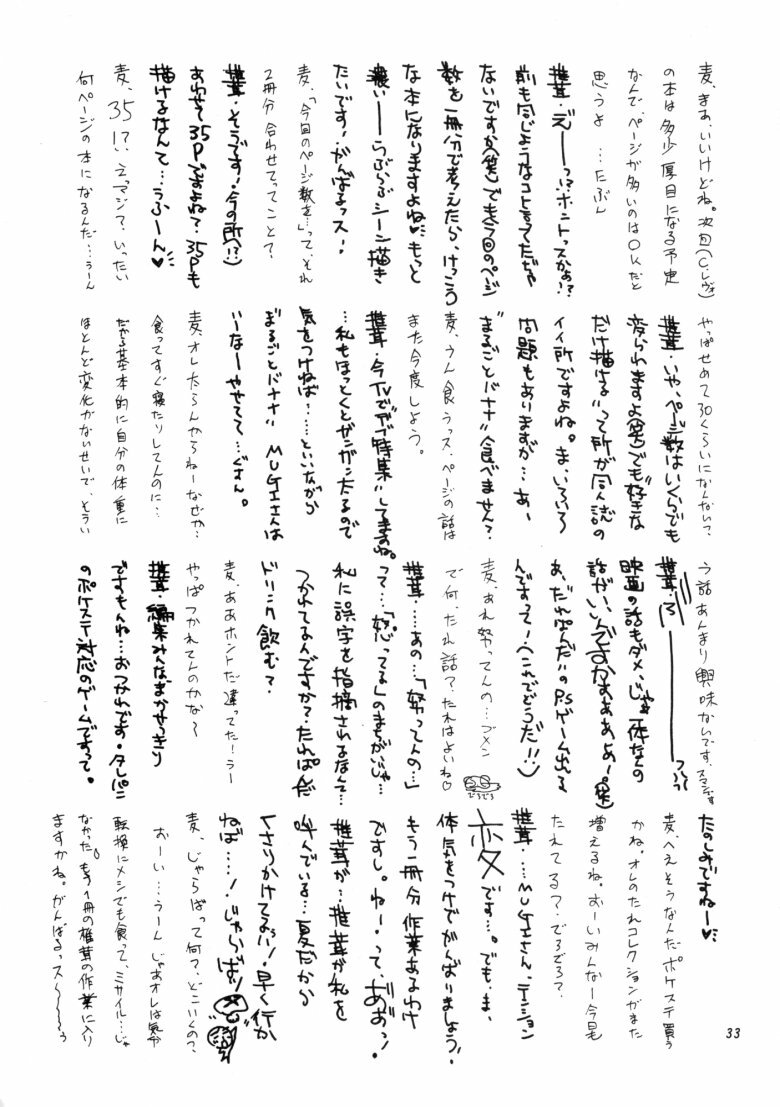 麦、まあ、いいけどね。次回(C.レヴォ)
の本は多少厚目になる予定
なんで、ページが多いのはOKだと
思うよ…たぶん
椎茸・え゛ーっ!?ホントっスかぁ!?
前も同じようなコト言ってたじゃ
ないですか(笑)でも今回のページ
数を一冊分で考えたら、けっこう
な本になりますよね♥もっと
濃いーらぶらぶシーン描き
たいです!がんばるっス!
麦、「今回のページ数を…」って、それ
2冊分合わせてってこと?
椎茸・そうです!今の所(!?)
あわせて35Pですよね?35Pも
描けるなんて…うふーん♥
麦、35!?、えっマジで、いったい
何ページの本になるんだ…うーん
やっぱせめて30くらいになんない?
椎茸・いや、ページ数はいくらでも
変られますよ(笑)でも"好きな
だけ描ける"って所が同人誌の
イイ所ですよね。ま、いろいろ
問題もありますが…あ、
"まるごとバナナ"食べません?
麦、うん食うっス、ページの話は
また今度しよう。
椎茸・今TVで"デブ特集"してますね。
…私もほっとくとガンガン太るので
気をつけねば……といいながら
"まるごとバナナ" MUGIさんは
いーなーやせてて…ぐすん。
麦、オレ太らんからねーなぜか?
食ってすぐ寝たりしてんのに…
だから基本的に自分の体重に
ほとんど変化がないせいで、そうい
う話あんまり興味ないです、スマンです
椎茸・う゛ーーっっっ
映画の話もダメ、じゃあ一体なんの
話がいいんですかあああぁ!(笑)
あ、"たれぱんだ"のPSゲーム出る
んですって!(これでどうだ!!)
麦、あれ努ってんの…ゴメン
で何、たれ話?、たれはよいね♡
でろでろ
椎茸……あの…「努ってんの…」
って…「怒ってる」のまちがいじゃ…
私に誤字を指摘されるなんて…
つかれてるんですか?たれぱんだ
ドリンク飲む?
麦、ああホントだ違ってた!うー
やっぱつかれてんのかな〜
椎茸・編集みんなまかせっきり
ですもんね…おつかれです・タレパンの
ポケステ対応のゲームですって。
たのしみですねー♥
麦、へえそうなんだポケステ買う
かね。オレのたれコレクションがまた
増えるね。おーいみんなー今日も
たれてる?・でろでろ?
椎茸……MUGIさん、テーション
変です…。でも、ま、
体気をつけてがんばりましょう!
もう一冊分作業あるわけ
ですし。ねー・って、あ゛あ゛っ!
椎茸が…椎茸が私を
呼んでいる…夏だから
くさりかけてるぅ!早く行か
ねば…!じゃらばっ!
麦、じゃらばって何?、どこいくの?
おーい…うーんじゃあオレは気分
転換にメシでも食って、ミサイル…じゃ
なかった。もう1冊の椎茸の作業に入り
ますかね。がんばるっス〜〜〜う
33